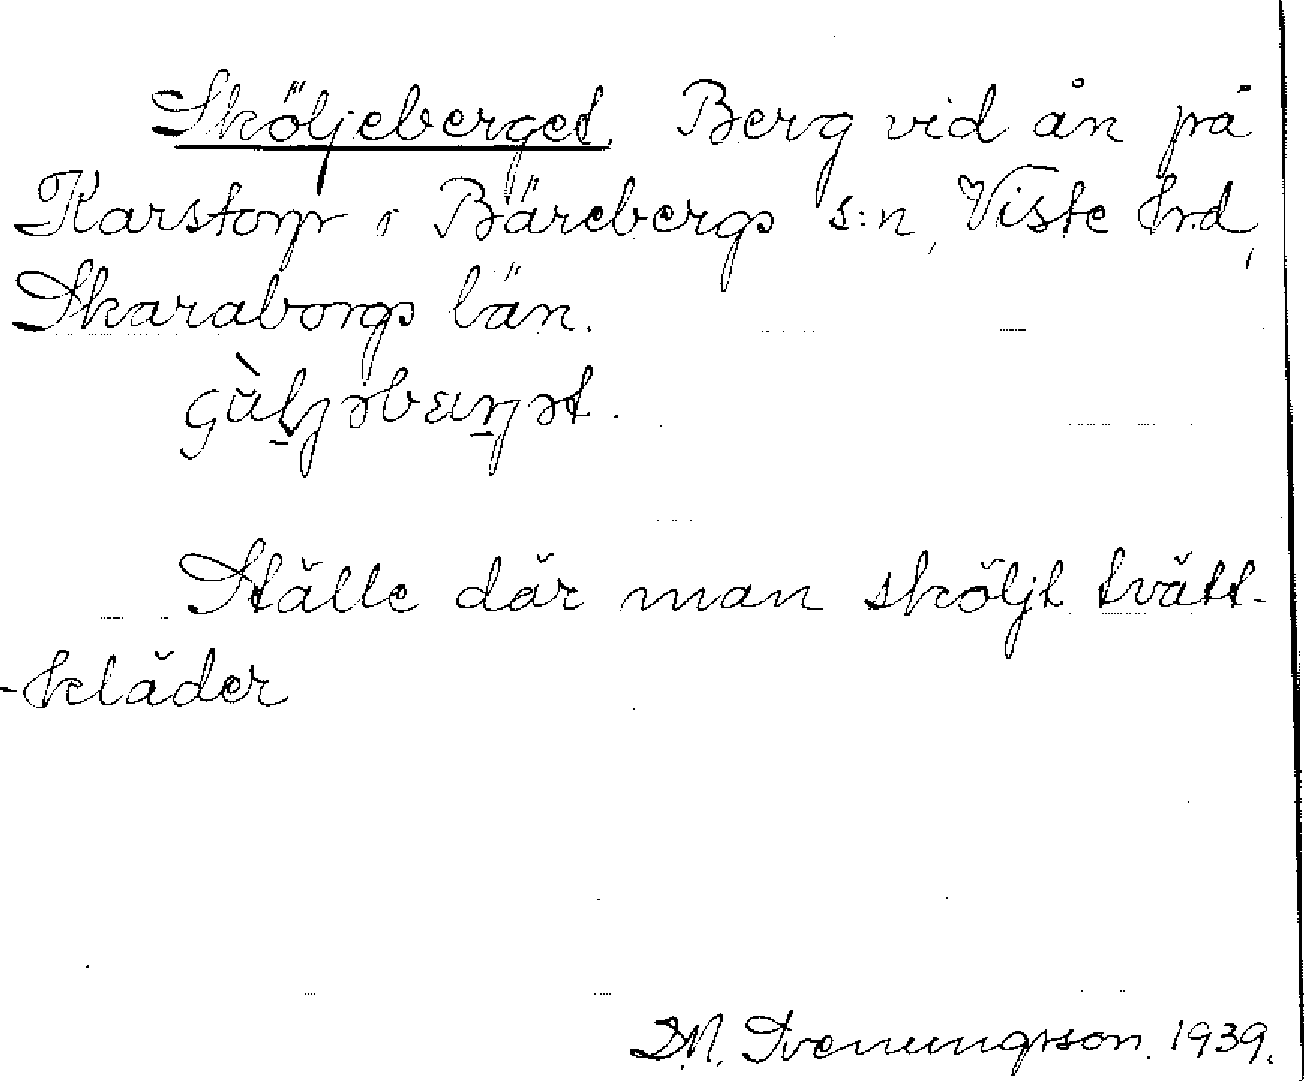 Sköljeberget. Berg vid ån på
Karstorp i Bärebergs s:n, Viste hrd,
Skaraborgs län.
Ställe där man sköljt tvätt-
-kläder
D.N. Svenungsson. 1939.